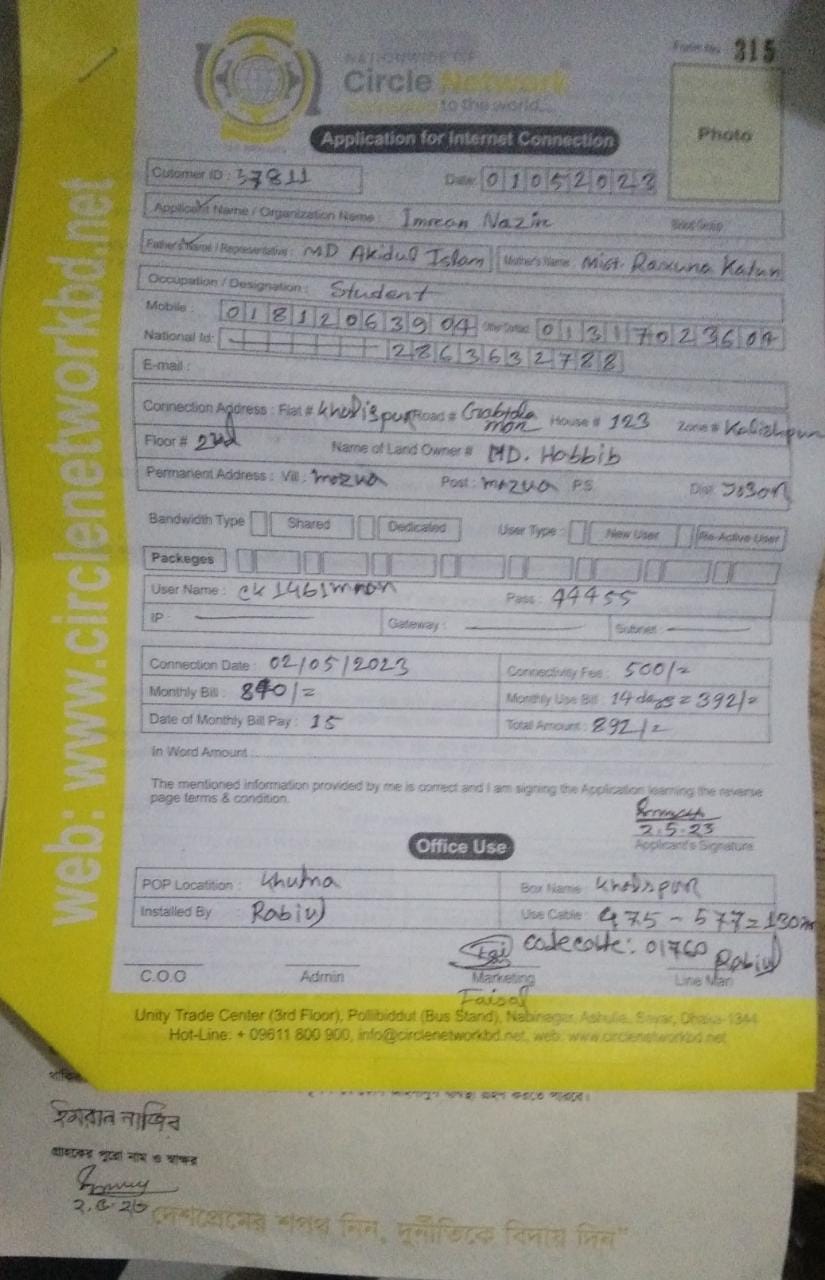 Form No. 315
NATIONWIDE ISP
Circle Network
Connected to the world...
Application for Internet Connection
Photo
Cutomer ID : 37811
Date: 01052023
Applicant Name / Organization Name : Imran Nazir
Blood Group
Father's Name / Representative : MD Akidul Islam Mother's Name : Mist.
Occupation / Designation : Student
Mobile : 01812063904 Other Contact 01317023604
National Id: 2863632788
E-mail :
Connection Address : Flat # Khalispur Road # House # 123 Zone # Kalishpur
Floor # 2nd Name of Land Owner # MD. Habbib
Permanent Address : Vill : mozua Post : mazua P.S. Dist
Bandwidth Type Shared Dedicated User Type : New User Re-Active User
Packeges
User Name : Pass : 44455
IP : Gateway : Subnet :
Connection Date : 02/05/2023 Connectivity Fee : 500/=
Monthly Bill : 840/= Monthly Use Bill : 14 days = 392/=
Date of Monthly Bill Pay : 15 Total Amount : 892/=
In Word Amount
The mentioned information provided by me is correct and I am signing the Application learning the reverse
page terms & condition.
2.5.23
Applicant's Signature
Office Use
POP Locatition : Khulna Box Name : Khalispur
Installed By Rabiul Use Cable : 475 - 577 = 130m
01760 Rabiul
C.O.O Admin Marketing Line Man
Faisal
Unity Trade Center (3rd Floor), Pollibiddut (Bus Stand), Nabinagar, Ashulia, Savar, Dhaka-1344
Hot-Line: + 09611 800 900, info@circlenetworkbd.net, web: www.circlenetworkbd.net
web: www.circlenetworkbd.net
ইমরান নাজির
গ্রাহকের পুরো নাম ও স্বাক্ষর
দেশপ্রেমের শপথ নিন, দুর্নীতিকে বিদায় দিন"